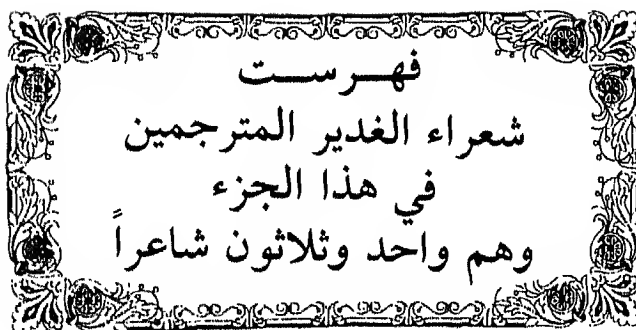 فهرست
شعراء الغدير المترجمين
في هذا الجزء
وهم واحد وثلاثون شاعراً